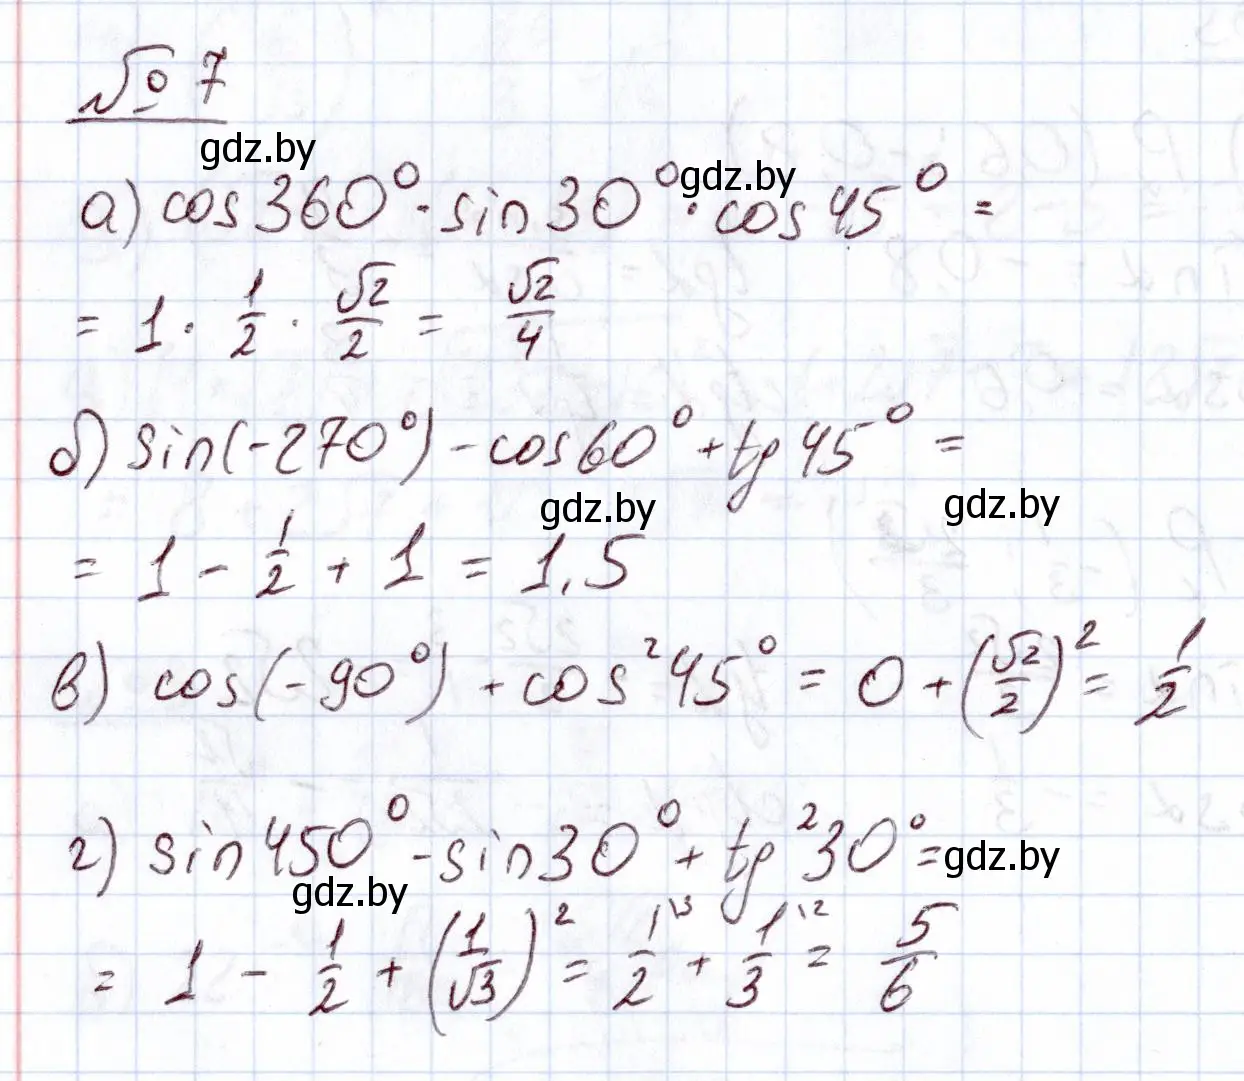 № 7
gdz.by
а) cos 360° · sin 30° · cos 45° =
gdz.by
= 1 · 1/2 · √2/2 = √2/4
б) sin(-270°) - cos 60° + tg 45° =
gdz.by
gdz.by
= 1 - 1/2 + 1 = 1,5
в) cos(-90°) + cos² 45° = 0 + (√2/2)² = 1/2
г) sin 450° - sin 30° + tg² 30° =
gdz.by
gdz.by
= 1 - 1/2 + (1/√3)² = 1/2 \3 + 1/3 \2 = 5/6